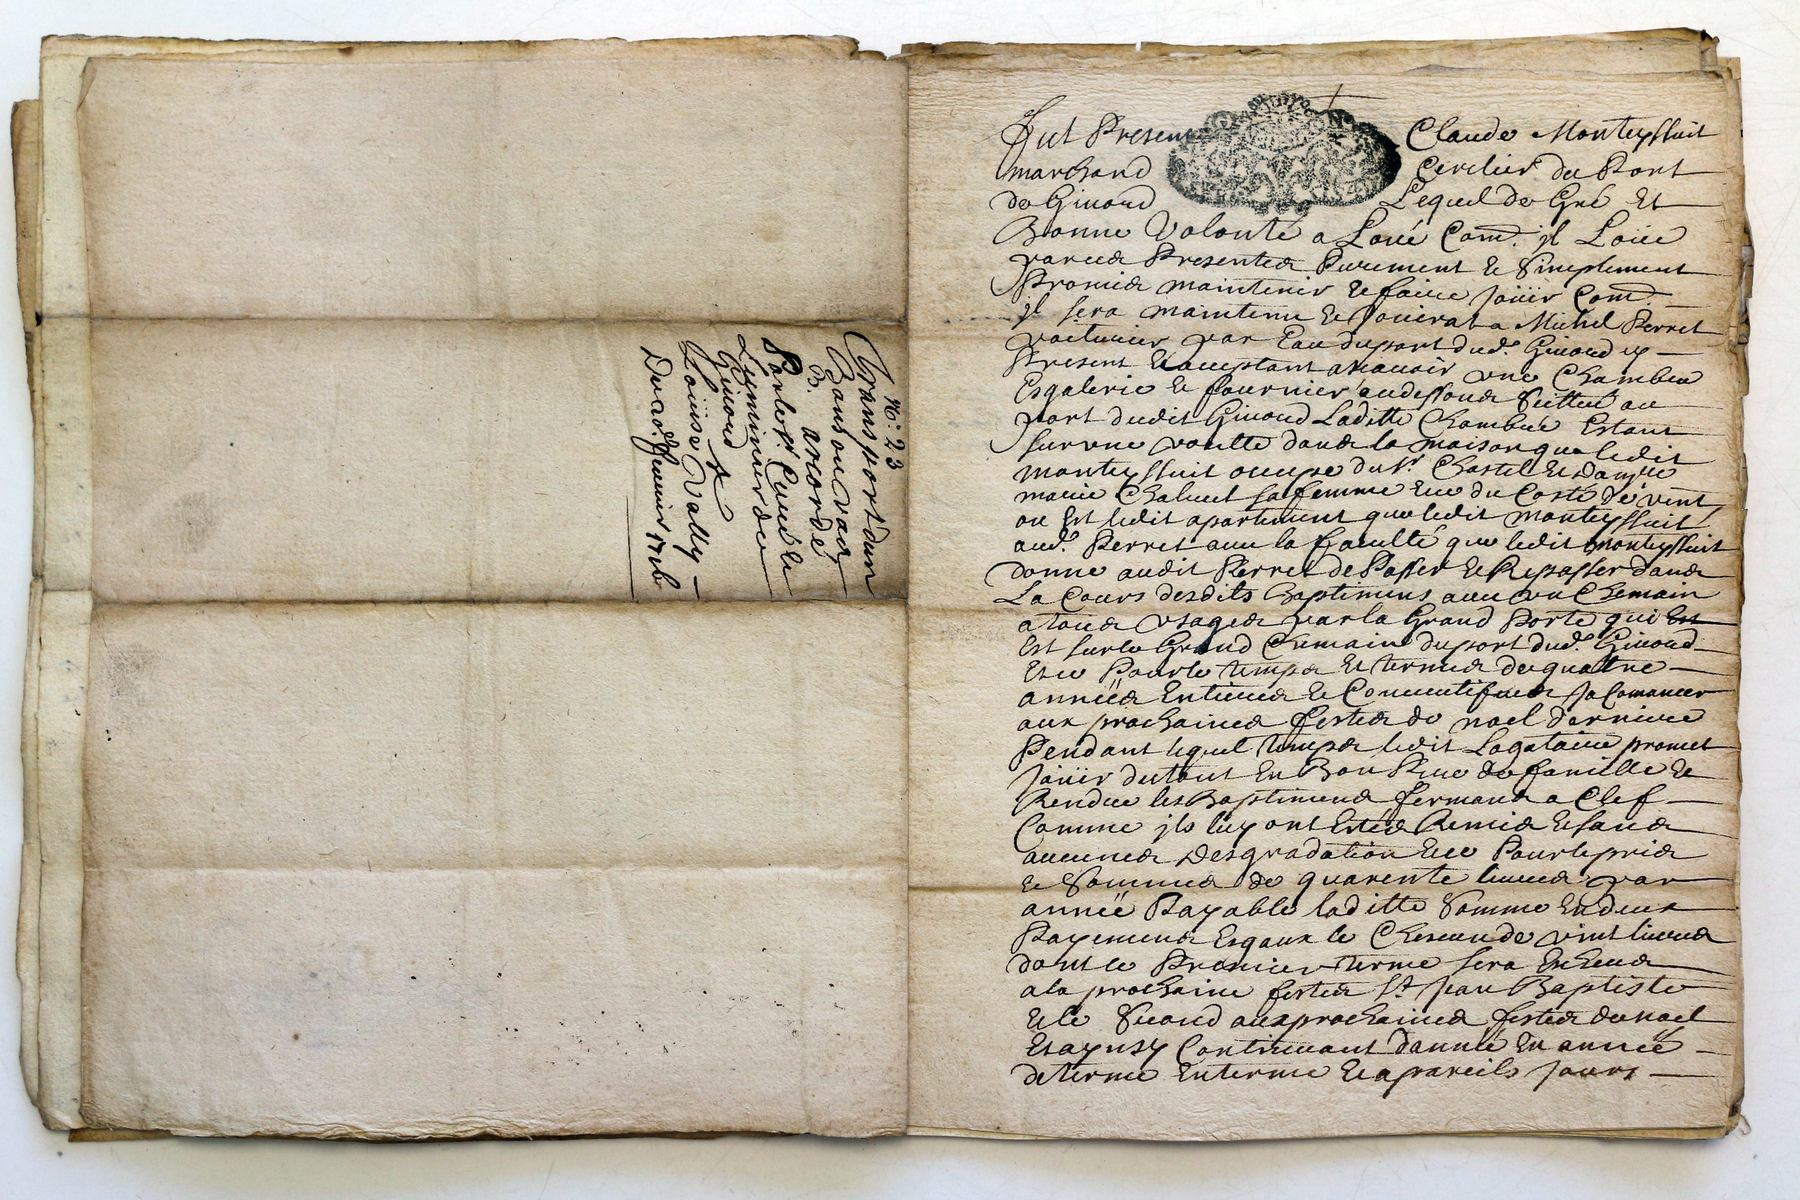 N.º 23
Transport dun
Banson vaq
B. accordé
Par le sr. Curé le
Lyminer de
Givord &
Louise Vally
Du 20e. Janvier 1716
Fut Present Claude Monteyssuit
marchand Cerclier du Port
de Givord Lequel de Gré Et
Bonne Volonté a Loué Com. jl Loüe
par ces Presentes Purement & Simplement
Promis maintenir & faire joüir Com.
jl sera maintenu & Jouira a Michel Perret
voiturier par Eau du port dud. Givord
Present & acceptant a scavoir une Chambre
Esgalerie & fournier au dessous Scittué au
port dudit Givord Laditte Chambre Estant
sur une voutte dans la maison que ledit
Monteyssuit occupe du Sr. Chastel Et
marie Chaluet sa femme du Costé de vent
ou Est ledit apartement que ledit Monteyssuit
aud. Perret avec la faculté que ledit Monteyssuit
donne audit Perret de Passer & Repasser dans
La Cours desdits Baptimens avec un Chemain
a tous usages par la Grand Porte qui Est
Est sur le Grand Chemain du port dud. Givord
Et ce Pour le temps Et termes de quatre
années Entieres & Consecutifues Ja Comancer
aux prochaines festes de noel derniere
Pendant lequel temps ledit Logataire promet
joüir du tout En Bon Pere de famille &
Rendre les Baptimens fermans a Clef
Comme jls luy ont Estés Remis & sans
aucunes Desgradation Et ce Pour le pris
& Somme de quarente livres par
année Payable laditte Somme En deux
Payemens Esgaux le Chescun de vint livres
dont le Promier terme sera Eschus
a la prochaine festes St. Jean Baptiste
& le Second aux prochaines festes de noel
Et aynsy Continuant dannée En année
de terme En terme & a pareils jours